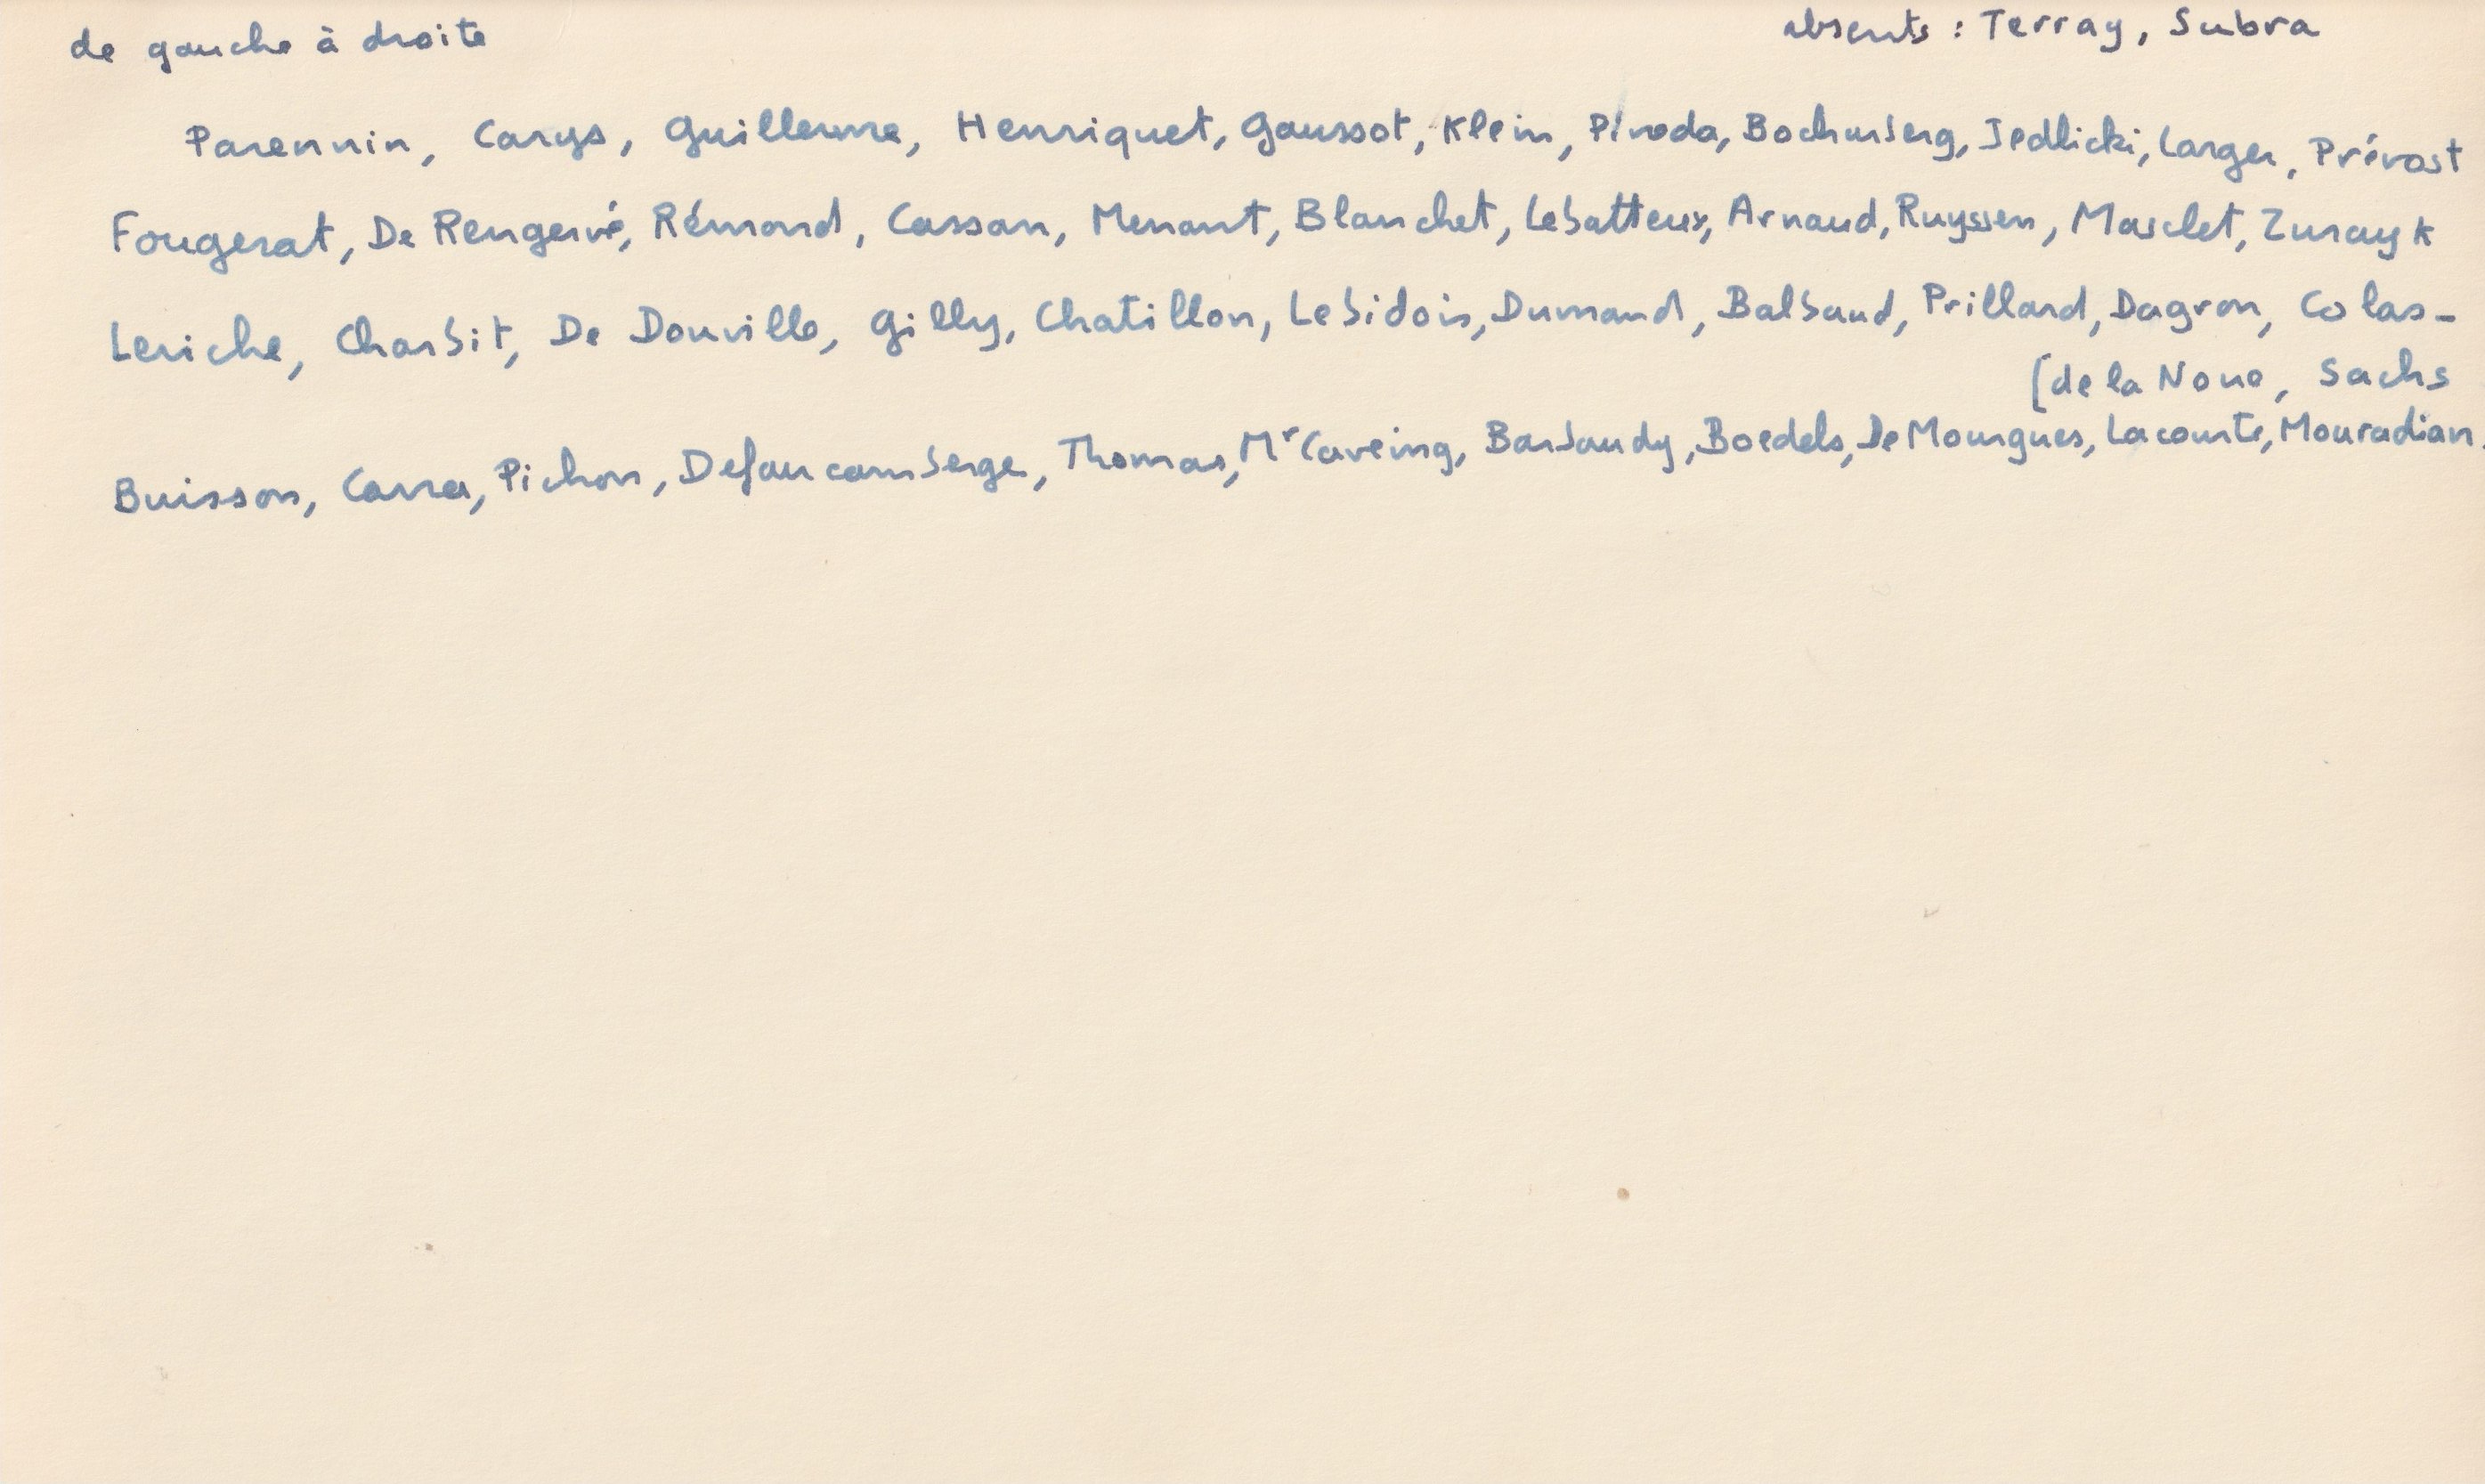 de gauche à droite
absents : Terray, Subra
Parennin, Carys, Guillerme, Henriquet, Gaussot, Klein, Pivoda, Bochurberg, Jedlicki, Larger, Prévost
Fougerat, De Rengervé, Rémond, Cassan, Menant, Blanchet, Lebatteux, Arnaud, Ruyssen, Masclet, Zurayk
Leriche, Charbit, De Douville, Gilly, Chatillon, Lebidois, Dumand, Balbaud, Prillard, Dagron, Colas-
[de la Noue, Sachs
Buisson, Carrer, Pichon, Defaucamberge, Thomas, Mr Caveing, Barbaudy, Boedels, De Mourgues, Lacomte, Mouradian.